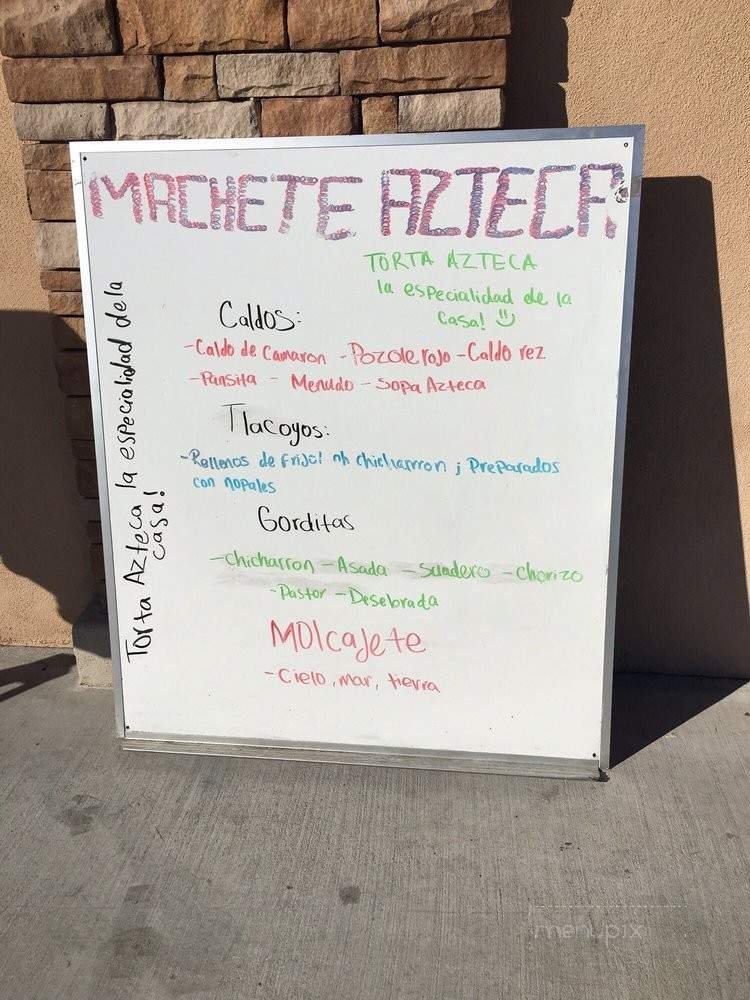 MACHETE AZTECA
TORTA AZTECA
la especialidad de la
casa!
Caldos:
-Caldo de Camaron -Pozole rojo -Caldo rez
-Pansita - Menudo - Sopa Azteca
Tlacoyos:
-Rellenos de frijol chicharrron ¡ Preparados
con nopales
Gorditas
-chicharron -Asada -Suadero -Chorizo
-Pastor -Desebrada
MOlcaJete
-Cielo, mar, tierra
Torta Azteca la especialidad de la
casa!
menupix